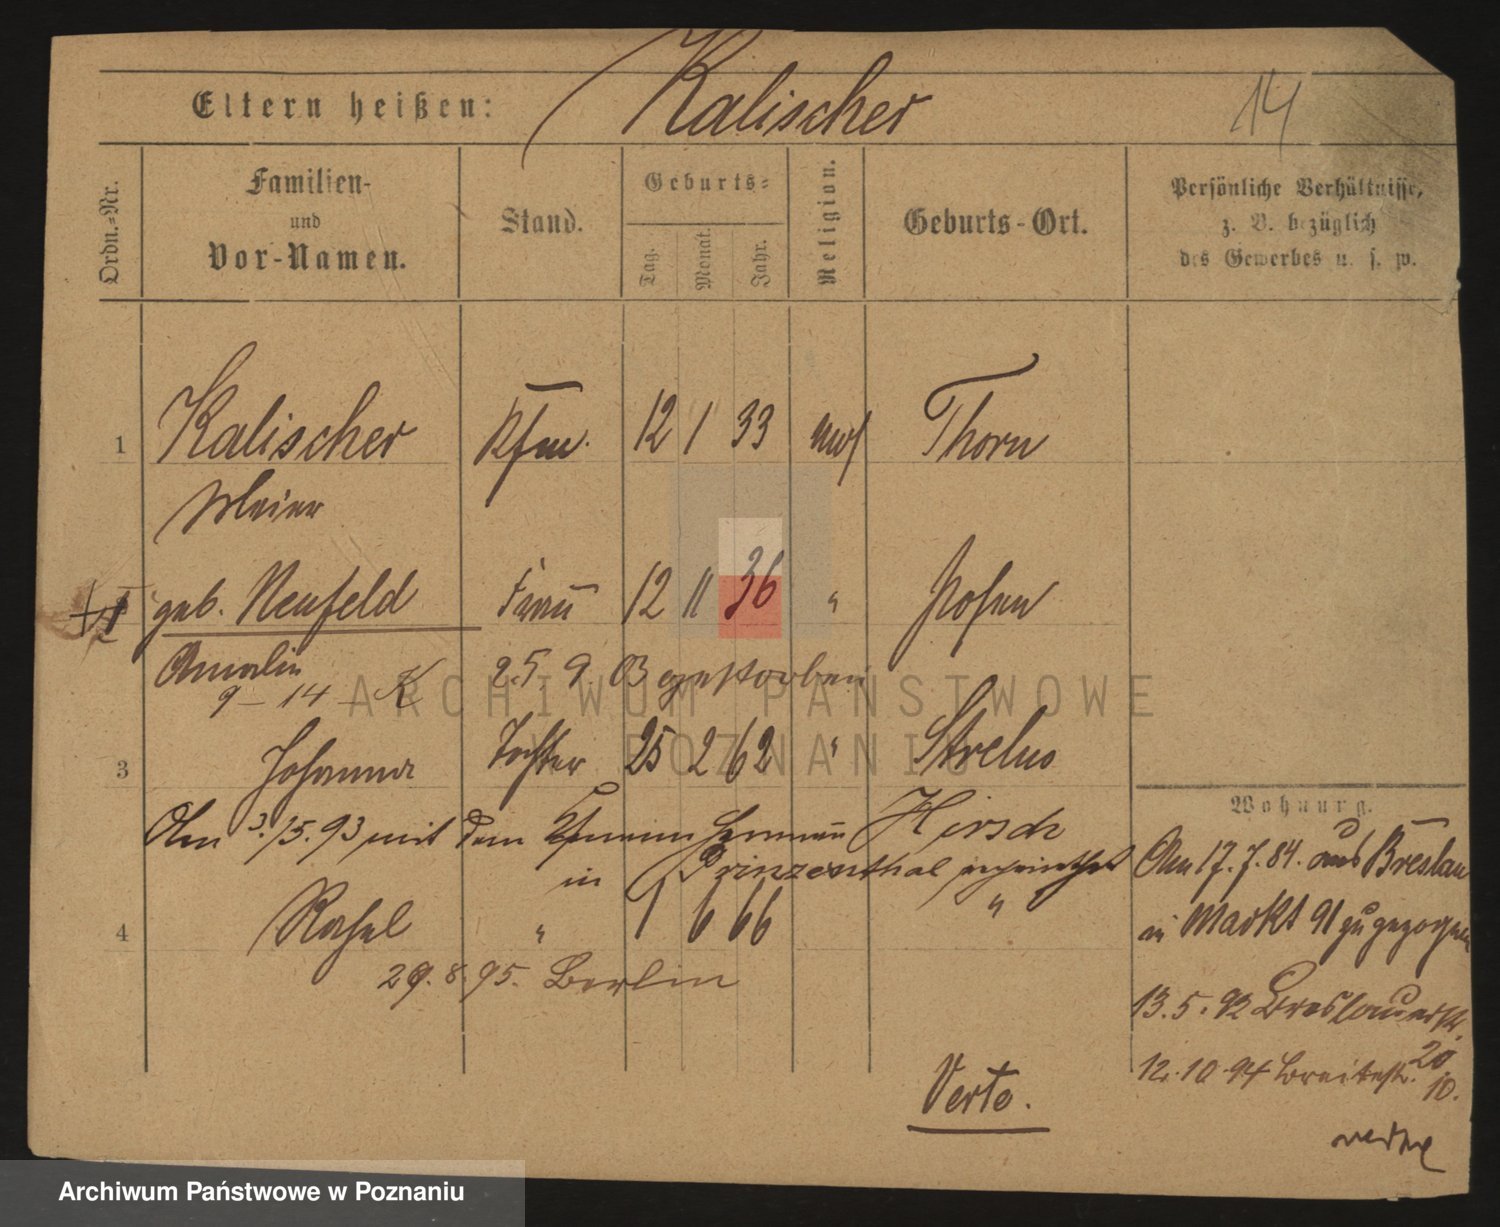 Eltern heißen: Kalischer 14
Ordn.-Nr.
Familien-
und
Vor-Namen.
Stand.
Geburts-
Tag.
Monat.
Jahr.
Religion.
Geburts-Ort.
Persönliche Verhältnisse,
z. B. bezüglich
des Gewerbes u. s. w.
1 Kalischer Kfm. 12 1 33 mos Thorn
Meier
geb. Neufeld Frau 12 11 36 " Posen
Amalie 25. 9. 03 gestorben
9 - 14 - K
3 Johanna Tochter 25 2 62 " Strelno
Am 3./5. 93 mit dem Kfmann Herman Hirsch
in Prinzenthal verheirathet
4 Rahel " 1 6 66 "
29. 8. 95. Berlin
Verte.
Wohnung.
Am 17. 7. 84. aus Breslau
in Markt 91 zugezogen
13. 5. 92 Breslauerstr.
20
12. 10. 94 Breitestr. 10.
verte
ARCHIWUM PAŃSTWOWE
W POZNANIU
Archiwum Państwowe w Poznaniu